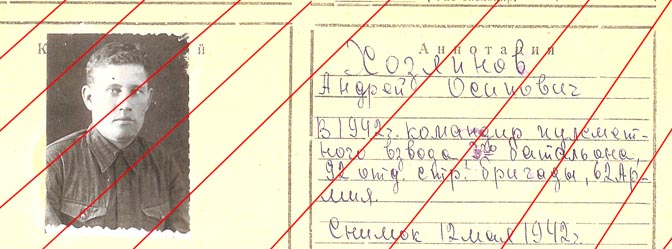 Аннотация
Хозяинов
Андрей Осипович
В 1942г. командир пулемет-
ного взвода батальона,
92 отд. стр. бригады, 62 Ар-
мия.
Снимок 12 мая 1942г.